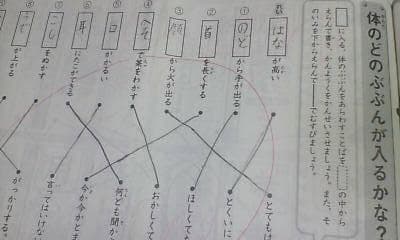 体のどのぶぶんが入るかな?
に入る、体のぶぶんをあらわすことばを の中から
えらんで書き、かんようくをかんせいさせましょう。また、そ
のいみを下からえらんで――でむすびましょう。
はな が高い
① のど から手が出る
② 首 を長くする
③ 顔 から火が出る
④ へそ で茶をわかす
⑤ 口 がかるい
⑥ 耳 にたこができる
⑦ こし をぬかす
⑧ が上がる
とてもけ
とくいに
ほしくても
おかしくて
何ども聞か
今か今かとま
言ってはいけな
がっかりする。